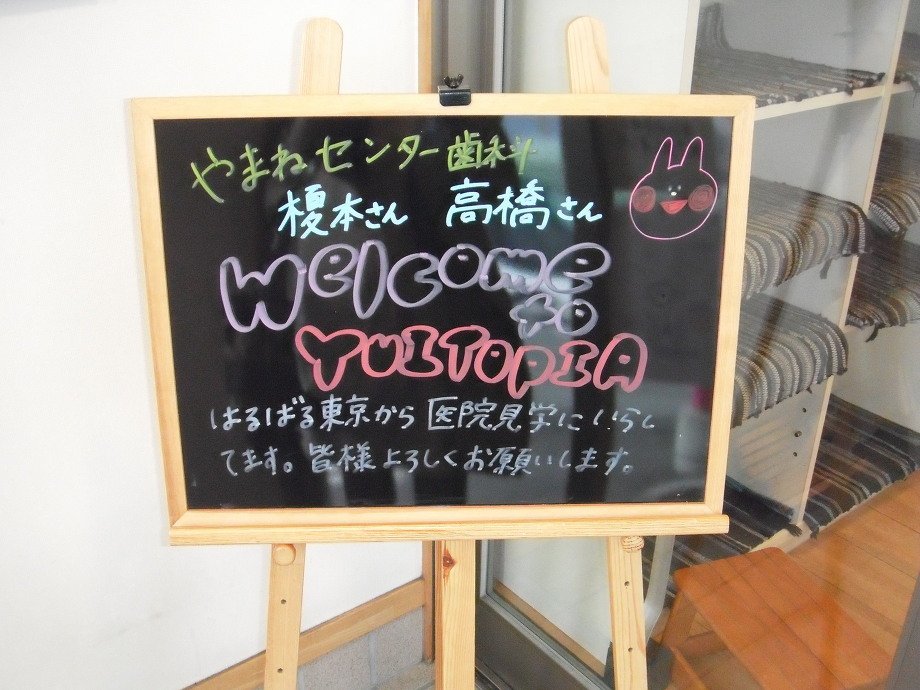 やまねセンター歯科
榎本さん 高橋さん
Welcome
to
YUITOPIA
はるばる東京から医院見学にいらし
てます。皆様よろしくお願いします。